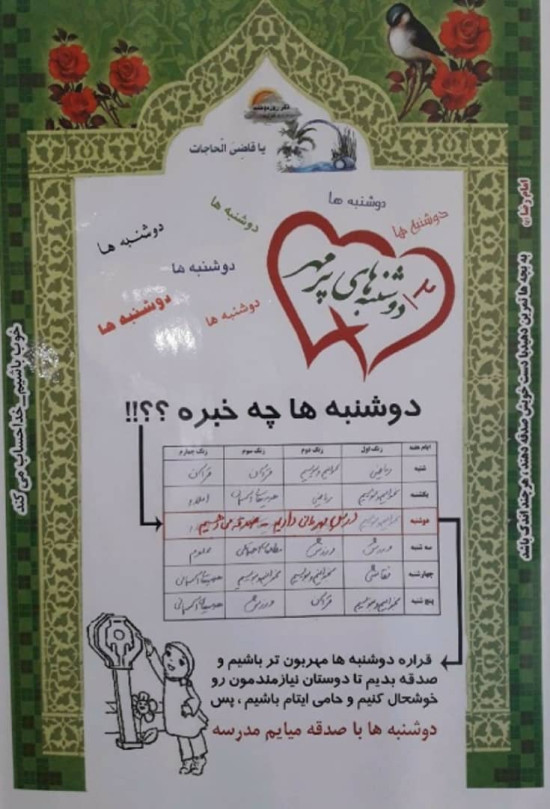 ذکر روز دوشنبه
یا قاضی الحاجات
دوشنبه ها
دوشنبه ها
دوشنبه ها
دوشنبه ها
دوشنبه ها
دوشنبه ها
دوشنبه ها
دوشنبه های پر مهر
امام رضا
به بچه ها تمرین دهید با دست خویش صدقه دهند ، هرچند اندک باشد
خوب باشیم_خدا حساب می کند
دوشنبه ها چه خبره ؟؟!!
ایام هفته زنگ اول زنگ دوم زنگ سوم زنگ چهارم
شنبه ریاضی قرآن
یکشنبه ریاضی املاء
دوشنبه درس مهربانی داریم
سه شنبه ورزش ورزش علوم
چهارشنبه نقاشی
پنج شنبه قرآن ورزش
قراره دوشنبه ها مهربون تر باشیم و
صدقه بدیم تا دوستان نیازمندمون رو
خوشحال کنیم و حامی ایتام باشیم ، پس
دوشنبه ها با صدقه میایم مدرسه